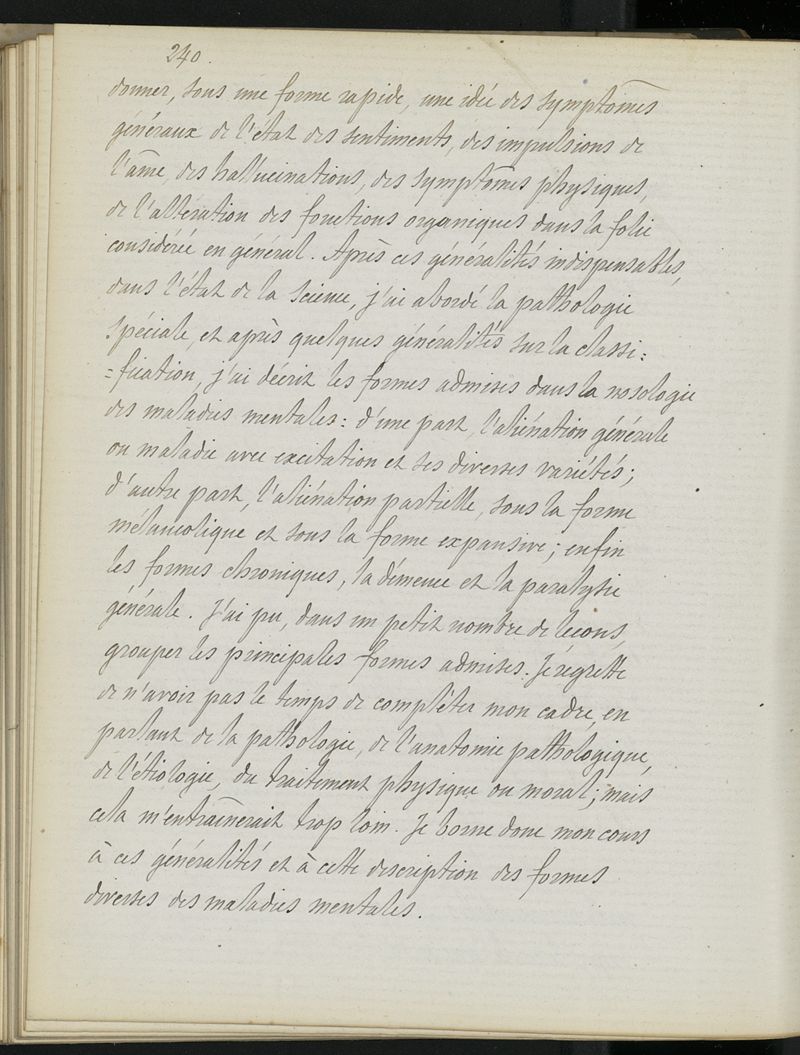 240.
donner, sous une forme rapide, une idée des symptômes
généraux de l'état des sentiments, des impulsions de
l'âme, des hallucinations, des symptômes physiques,
de l'altération des fonctions organiques dans la folie
considérée en général. Après ces généralités indispensables,
dans l'état de la science, j'ai abordé la pathologie
spéciale, et après quelques généralités sur la classi=
=fication, j'ai décrit les formes admises dans la nosologie
des maladies mentales: d'une part, l'aliénation générale
ou maladie avec excitation et ses diverses variétés;
d'autre part, l'aliénation partielle, sous la forme
mélancolique et sous la forme expansive; enfin
les formes chroniques, la démence et la paralysie
générale. J'ai pu, dans un petit nombre de leçons,
grouper les principales formes admises. Je regrette
de n'avoir pas le temps de compléter mon cadre, en
parlant de la pathologie, de l'anatomie pathologique,
de l'étiologie, du traitement physique ou moral; mais
cela m'entraînerait trop loin. Je borne donc mon cours
à ces généralités et à cette description des formes
diverses des maladies mentales.